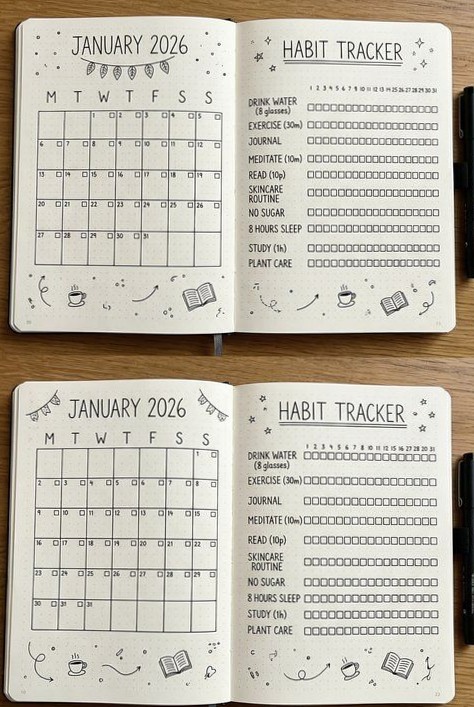 JANUARY 2026
M T W T F S S
1 2 3 4 5
6 7 8 9 10 11 12
13 14 15 16 17 18 19
20 21 22 23 24 25 26
27 28 29 30 31
HABIT TRACKER
1 2 3 4 5 6 7 8 9 10 11 12 13 14 15 16 17 18 19 20 21 22 23 24 25 26 27 28 29 30 31
DRINK WATER
(8 glasses)
EXERCISE (30m)
JOURNAL
MEDITATE (10m)
READ (10p)
SKINCARE
ROUTINE
NO SUGAR
8 HOURS SLEEP
STUDY (1h)
PLANT CARE
JANUARY 2026
M T W T F S S
1
2 3 4 5 6 7 8
9 10 11 12 13 14 15
16 17 18 19 20 21 22
23 24 25 26 27 28 29
30 31 31
HABIT TRACKER
1 2 3 4 5 6 7 8 9 10 11 12 13 14 15 16 17 18 19 20 21 22 23 24 25 26 27 28 29 30 31
DRINK WATER
(8 glasses)
EXERCISE (30m)
JOURNAL
MEDITATE (10m)
READ (10p)
SKINCARE
ROUTINE
NO SUGAR
8 HOURS SLEEP
STUDY (1h)
PLANT CARE